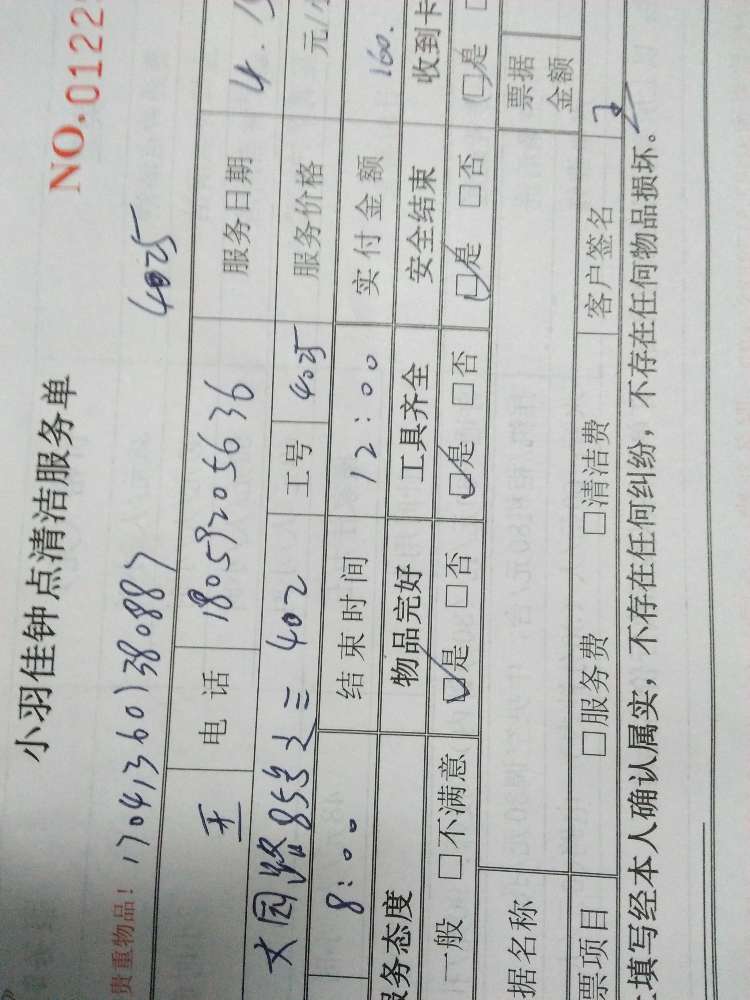 小羽佳钟点清洁服务单
NO.0122
贵重物品！ 170413601380887 4025
王 电话 18059205636 服务日期 4.15
文园路85号之三402 工号 4025 服务价格 元/
8:00 结束时间 12:00 实付金额 160.
服务态度 物品完好 工具齐全 安全结束 收到卡
一般 □不满意 ☑是 □否 ☑是 □否 ☑是 □否 □是
据名称 票据金额
票项目 □服务费 □清洁费 客户签名 王
填写经本人确认属实，不存在任何纠纷，不存在任何物品损坏。